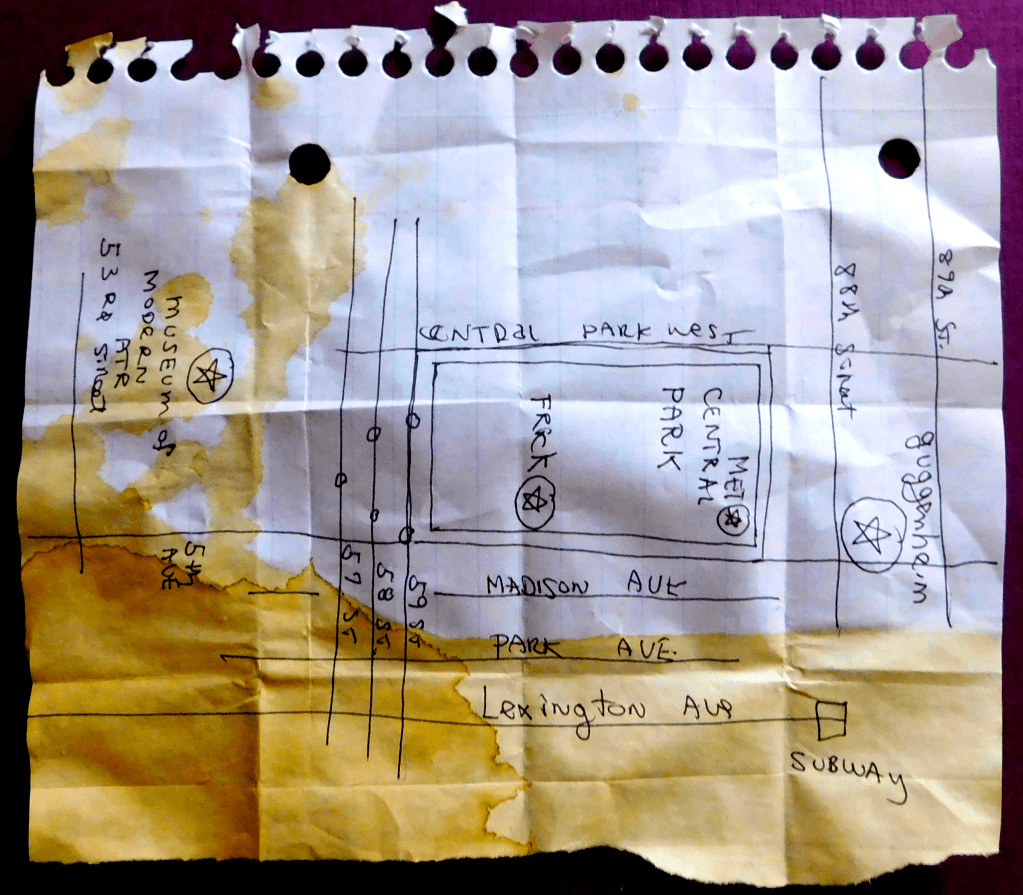 CENTRAL PARK WEST
89th ST.
88th Street
guggenheim
MET
CENTRAL
PARK
FRICK
MUSEUM of
MODERN
ATR
53RD Street
5th
AVE
57 St
58 St
59 St
MADISON AVE
PARK AVE.
Lexington Ave
SUBWAY